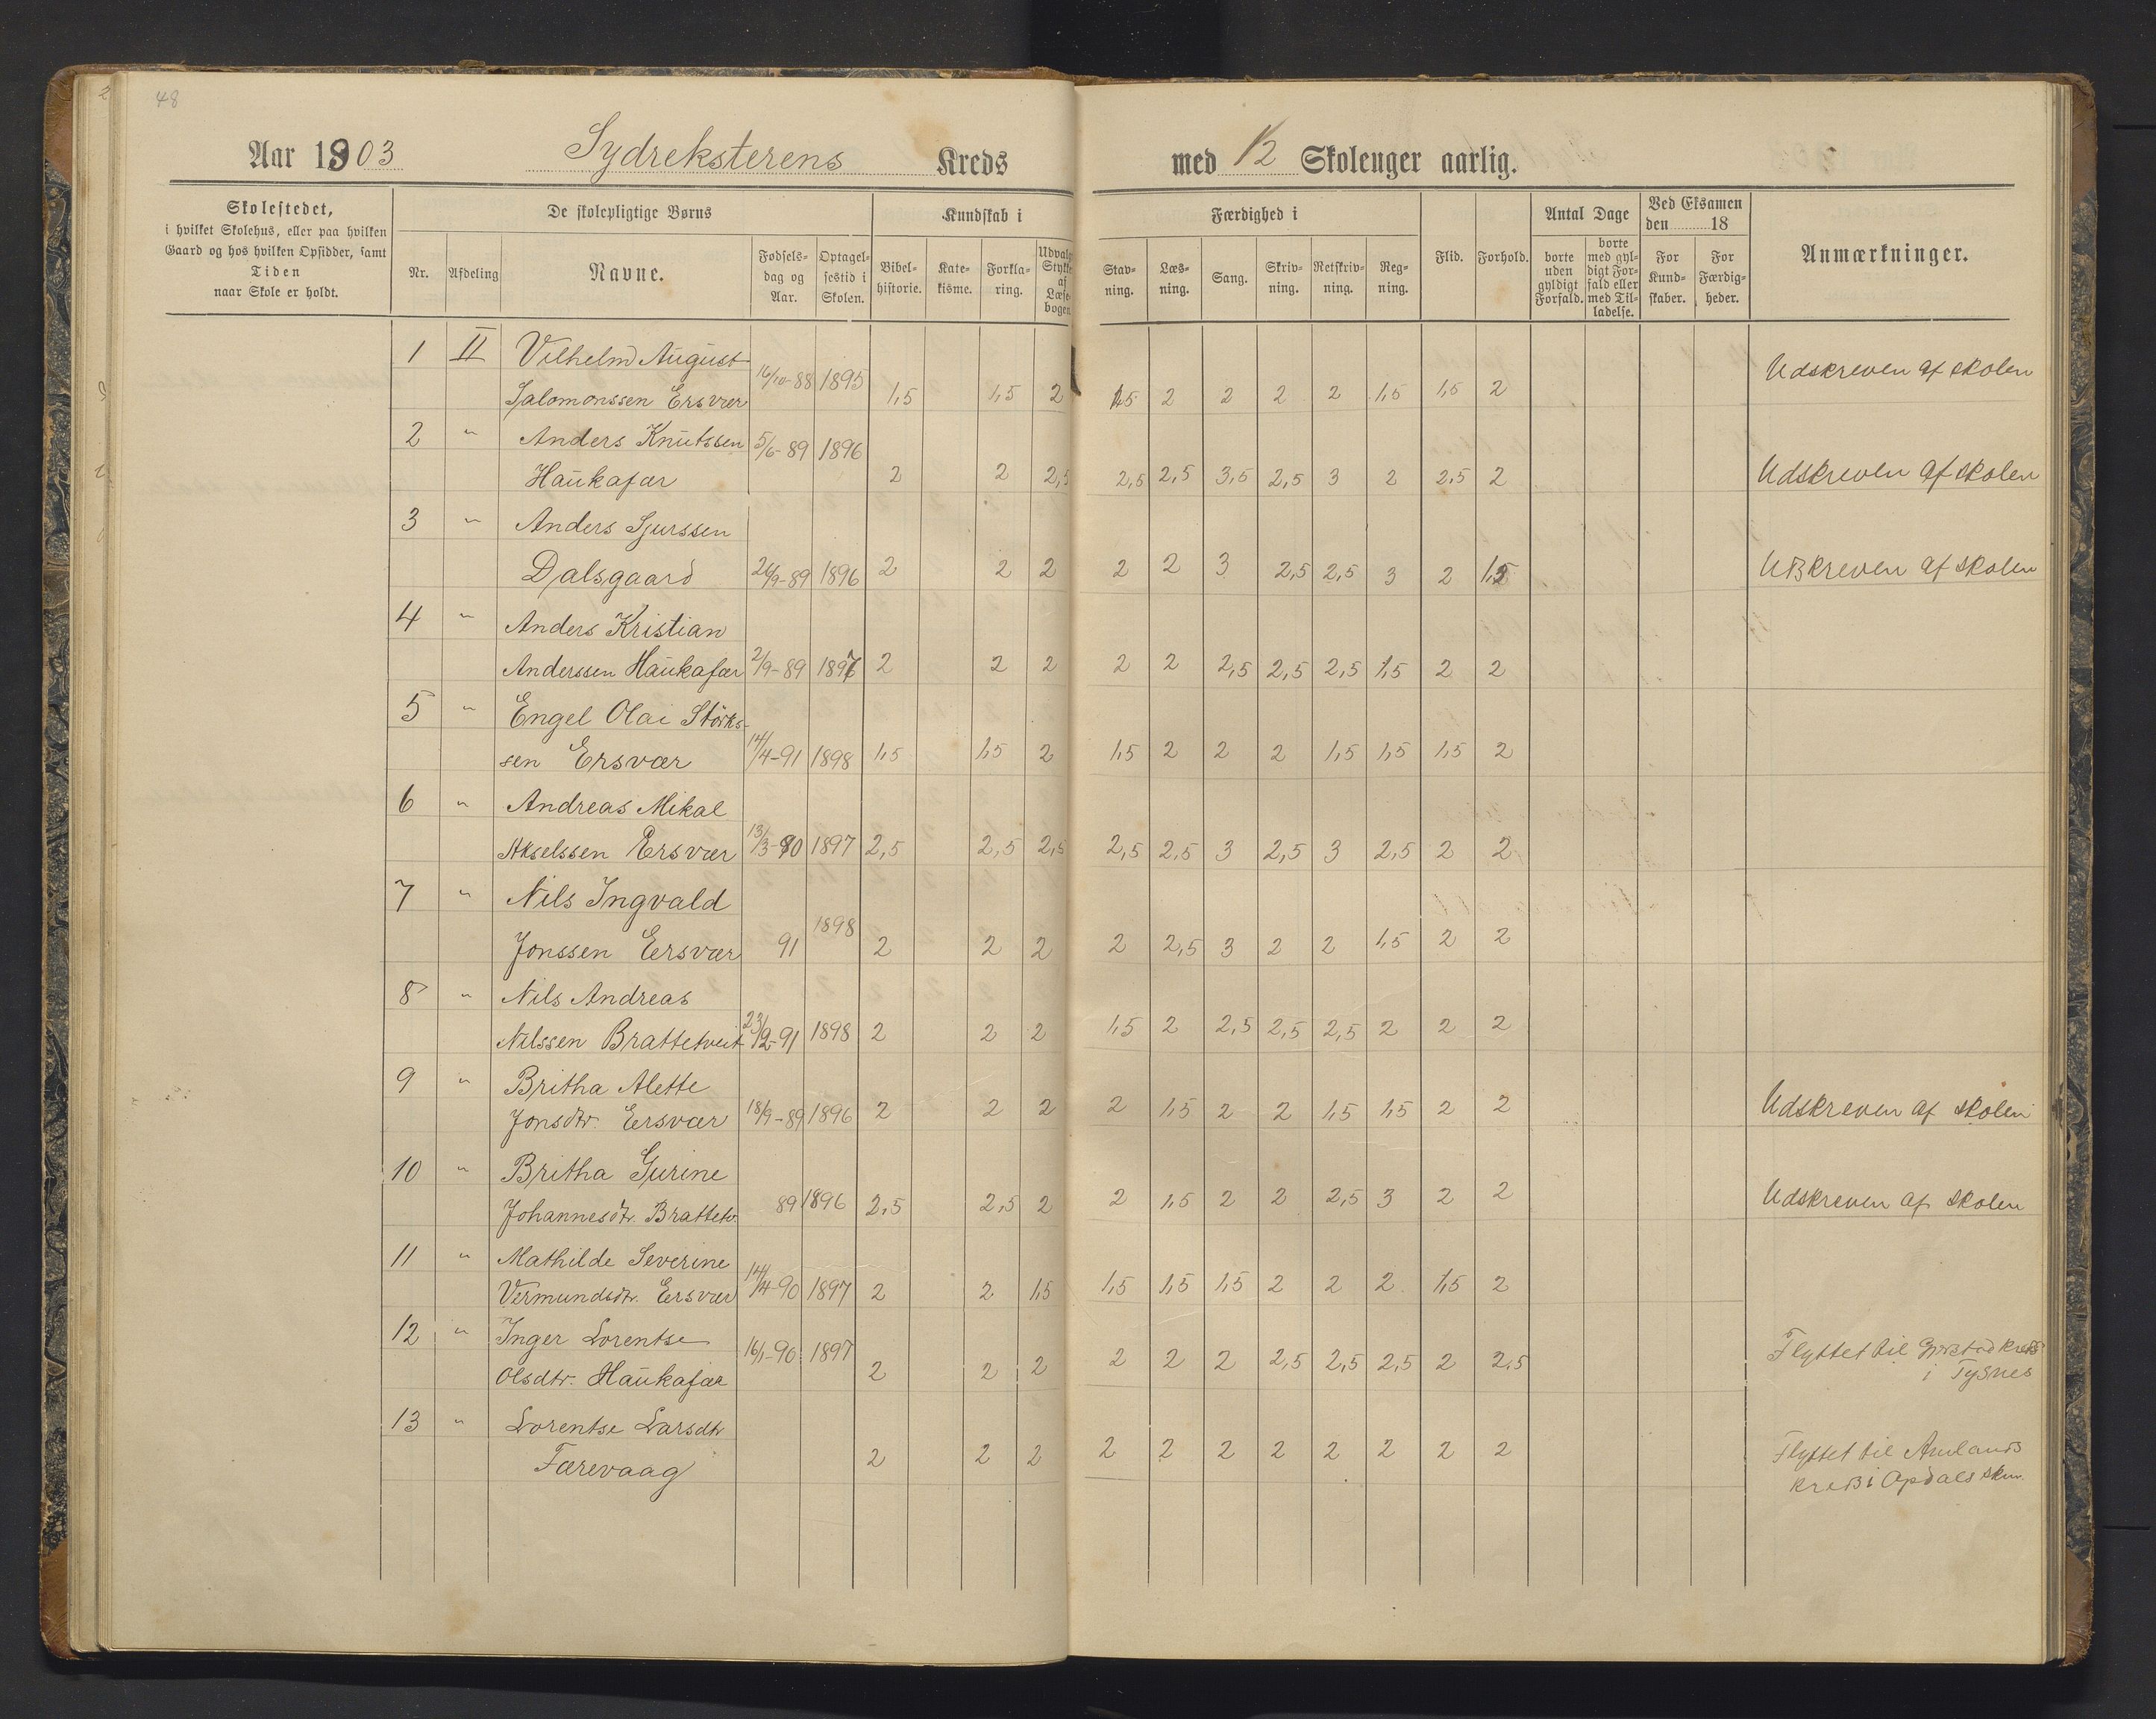 48
Aar 1903 Sydreksterens Kreds med 12 Skoleuger aarlig.
Skolestedet,
i hvilket Skolehus, eller paa hvilken
Gaard og hos hvilken Opsidder, samt
Tiden
naar Skole er holdt.
De skolepligtige Børns
Nr. Afdeling Navne. Fødsels-dag og Aar. Optagel-sestid i Skolen.
Kundskab i
Bibel-historie. Kate-kisme. Forkla-ring. Udvalgte Stykker af Læse-bogen
Færdighed i
Stav-ning. Læs-ning. Sang. Skriv-ning. Retskriv-ning. Reg-ning.
Flid. Forhold.
Antal Dage
borte uden gyldigt Forfald. borte med gyl-digt For-fald eller med Til-ladelse.
Ved Eksamen
den 18
For Kund-skaber. For Færdig-heder.
Anmærkninger.
1 II Vilhelm August
Salomonssen Ersvær 16/10-88 1895 1,5 1,5 2 1,5 2 2 2 2 1,5 1,5 2 Udskreven af skolen
2 " Anders Knutssen 5/6-89 1896
Haukafær 2 2 2,5 2,5 2,5 3,5 2,5 3 2 2,5 2 Udskreven af skolen
3 " Anders Sjurssen
Dalsgaard 26/9-89 1896 2 2 2 2 2 3 2,5 2,5 3 2 1,5 Udskreven af skolen
4 " Anders Kristian
Anderssen Haukafær 2/9-89 1897 2 2 2 2 2 2,5 2,5 2,5 1,5 2 2
5 " Engel Olai Störks-
sen Ersvær 14/4-91 1898 1,5 1,5 2 1,5 2 2 2 1,5 1,5 1,5 2
6 " Andreas Mikal
Akselssen Ersvær 13/3-90 1897 2,5 2,5 2,5 2,5 2,5 3 2,5 3 2,5 2 2
7 " Nils Ingvald
Jonssen Ersvær 91 1898 2 2 2 2 2,5 3 2 2 1,5 2 2
8 " Nils Andreas
Nilssen Brattetveit 23/2-91 1898 2 2 2 1,5 2 2,5 2,5 2,5 2 2 2
9 " Britha Alette
Jonsdtr. Ersvær 18/9-89 1896 2 2 2 2 1,5 2 2 1,5 1,5 2 2 Udskreven af skolen
10 " Britha Gurine
Johannesdtr. Brattetv. 89 1896 2,5 2,5 2 2 1,5 2 2 2,5 3 2 2 Udskreven af skolen
11 " Mathilde Severine
Vermundsdtr. Ersvær 14/4-90 1897 2 2 1,5 1,5 1,5 1,5 2 2 2 1,5 2
12 " Inger Lorentse 16/1-90 1897
Olsdtr. Haukafær 2 2 2 2 2 2 2,5 2,5 2,5 2 2,5 Flyttet til kreds
i Tysnes
13 " Lorentse Larsdtr
Færevaag 2 2 2 2 2 2 2 2 2 2 2 Flyttet til Amlands
kreds i Opdals skm.